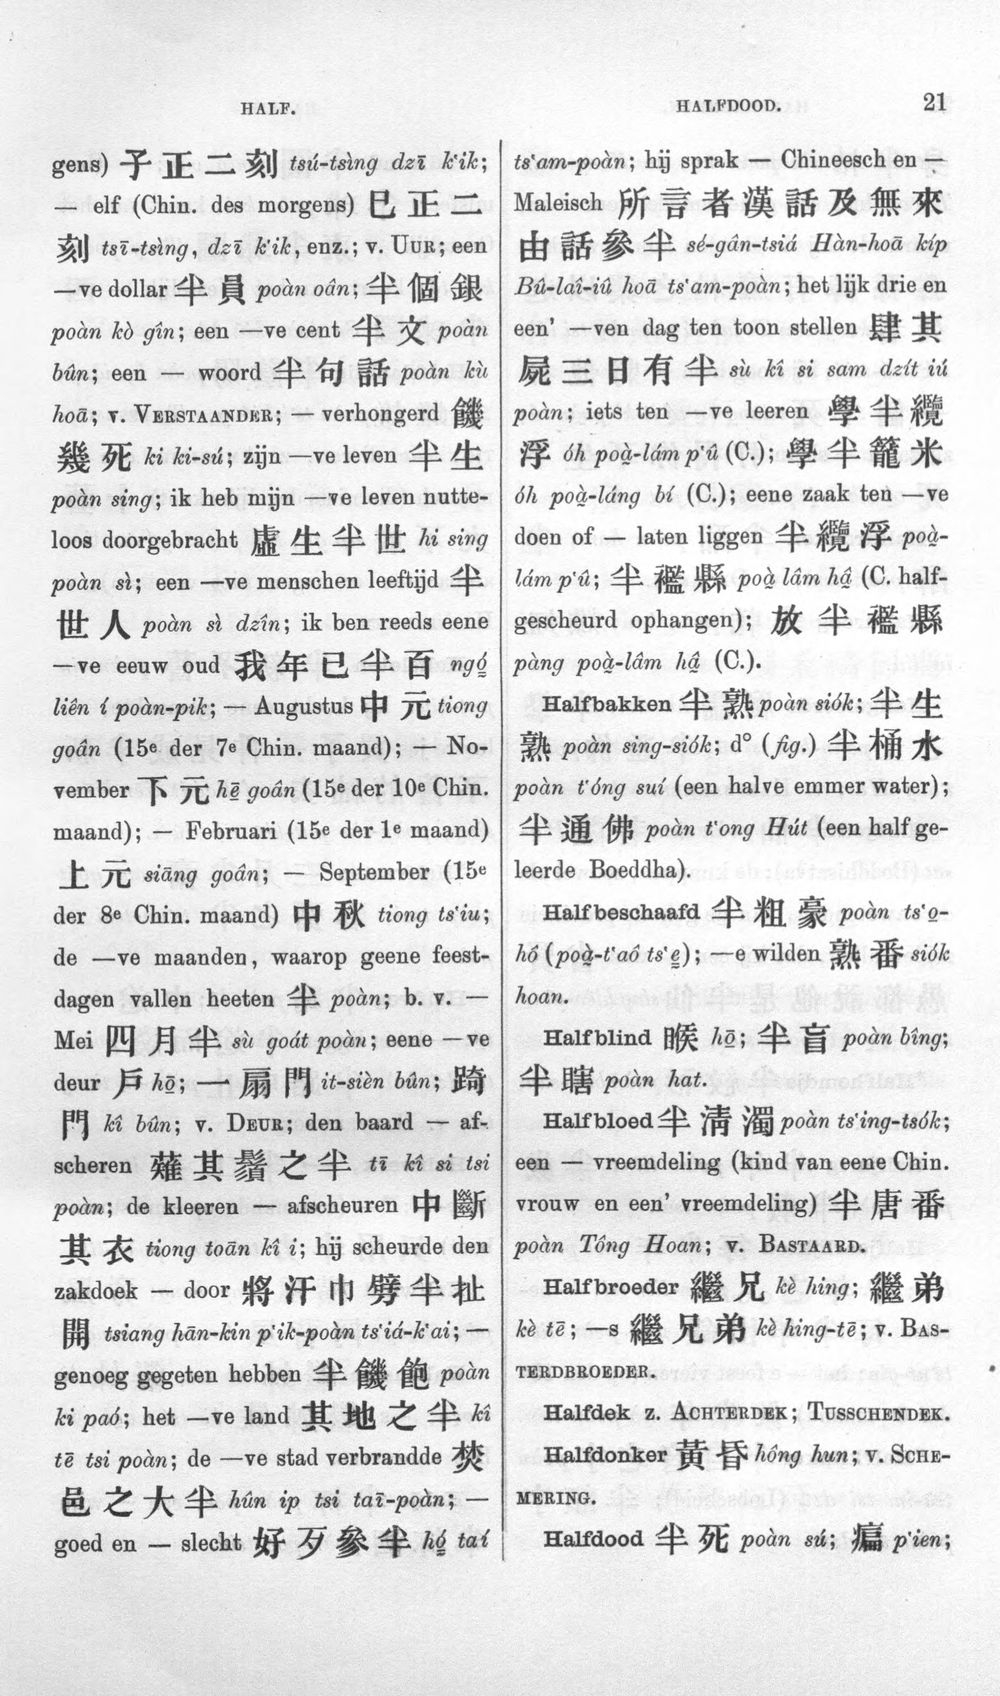 HALF.
HALFDOOD.
21
gens) 子正二刻 tsú-tsìng dzī k‘ik;
— elf (Chin. des morgens) 巳正二
刻 tsī-tsìng, dzī k‘ik, enz.; v. UUR; een
—ve dollar 半員 poàn oân; 半個銀
poàn kò gîn; een —ve cent 半文 poàn
bûn; een — woord 半句話 poàn kù
hoā; v. VERSTAANDER; — verhongerd 饑
幾死 ki ki-sú; zijn —ve leven 半生
poàn sing; ik heb mijn —ve leven nutte-
loos doorgebracht 虛生半世 hi sing
poàn sì; een —ve menschen leeftijd 半
世人 poàn sì dzîn; ik ben reeds eene
—ve eeuw oud 我年已半百 ngó̤
liên í poàn-pik; — Augustus 中元 tiong
goân (15e der 7e Chin. maand); — No-
vember 下元 hē̤ goân (15e der 10e Chin.
maand); — Februari (15e der 1e maand)
上元 siāng goân; — September (15e
der 8e Chin. maand) 中秋 tiong ts‘iu;
de —ve maanden, waarop geene feest-
dagen vallen heeten 半 poàn; b. v. —
Mei 四月半 sù goát poàn; eene —ve
deur 戶 hō̤; 一扇門 it-sièn bûn; 踦
門 kî bûn; v. DEUR; den baard — af-
scheren 薙其鬚之半 tī kî si tsi
poàn; de kleeren — afscheuren 中斷
其衣 tiong toān kî i; hij scheurde den
zakdoek — door 將汗巾劈半扯
開 tsiang hān-kin p‘ik-poàn ts‘iá-k‘ai; —
genoeg gegeten hebben 半饑飽 poàn
ki paó; het —ve land 其地之半 kî
tē tsi poàn; de —ve stad verbrandde 焚
邑之大半 hûn ip tsi taī-poàn; —
goed en — slecht 好歹參半 hó̤ taí
ts‘am-poàn; hij sprak — Chineesch en —
Maleisch 所言者漢話及無來
由話參半 sé-gân-tsiá Hàn-hoā kíp
Bû-laî-iû hoā ts‘am-poàn; het lijk drie en
een’ —ven dag ten toon stellen 肆其
屍三日有半 sù kî si sam dzít iú
poàn; iets ten —ve leeren 學半纜
浮 óh poà̤-lám p‘û (C.); 學半籠米
óh poà̤-láng bí (C.); eene zaak ten —ve
doen of — laten liggen 半纜浮 poà̤-
lám p‘û; 半襤縣 poà̤ lâm hâ̤ (C. half-
gescheurd ophangen); 放半襤縣
pàng poà̤-lâm hâ̤ (C.).
Halfbakken 半熟 poàn siók; 半生
熟 poàn sing-siók; d° (fig.) 半桶水
poàn t‘óng suí (een halve emmer water);
半通佛 poàn t‘ong Hút (een half ge-
leerde Boeddha).
Halfbeschaafd 半粗豪 poàn ts‘o̤-
hô (poà̤-t‘aô ts‘e̤); —e wilden 熟番 siók
hoan.
Halfblind 睺 hō̤; 半盲 poàn bîng;
半瞎 poàn hat.
Halfbloed 半清濁 poàn ts‘ing-tsók;
een — vreemdeling (kind van eene Chin.
vrouw en een’ vreemdeling) 半唐番
poàn Tông Hoan; v. BASTAARD.
Halfbroeder 繼兄 kè hing; 繼弟
kè tē; —s 繼兄弟 kè hing-tē; v. BAS-
TERDBROEDER.
Halfdek z. ACHTERDEK; TUSSCHENDEK.
Halfdonker 黃昏 hông hun; v. SCHE-
MERING.
Halfdood 半死 poàn sú; 瘺 p‘ien;